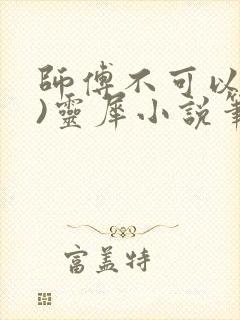 師傅不可以
)靈犀小說筆
富蓋特